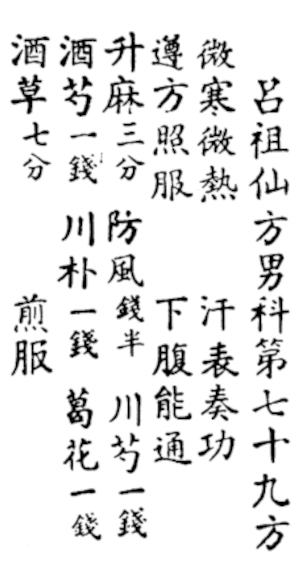 呂祖仙方男科第七十九方
微寒微熱 汗表奏功
遵方照服 下腹能通
升麻三分 防風錢半 川芎一錢
酒芍一錢 川朴一錢 葛花一錢
酒草七分 煎服